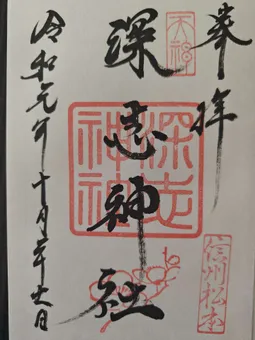 奉拝
天神
深志神社
深志神社
信州松本
令和元年十月